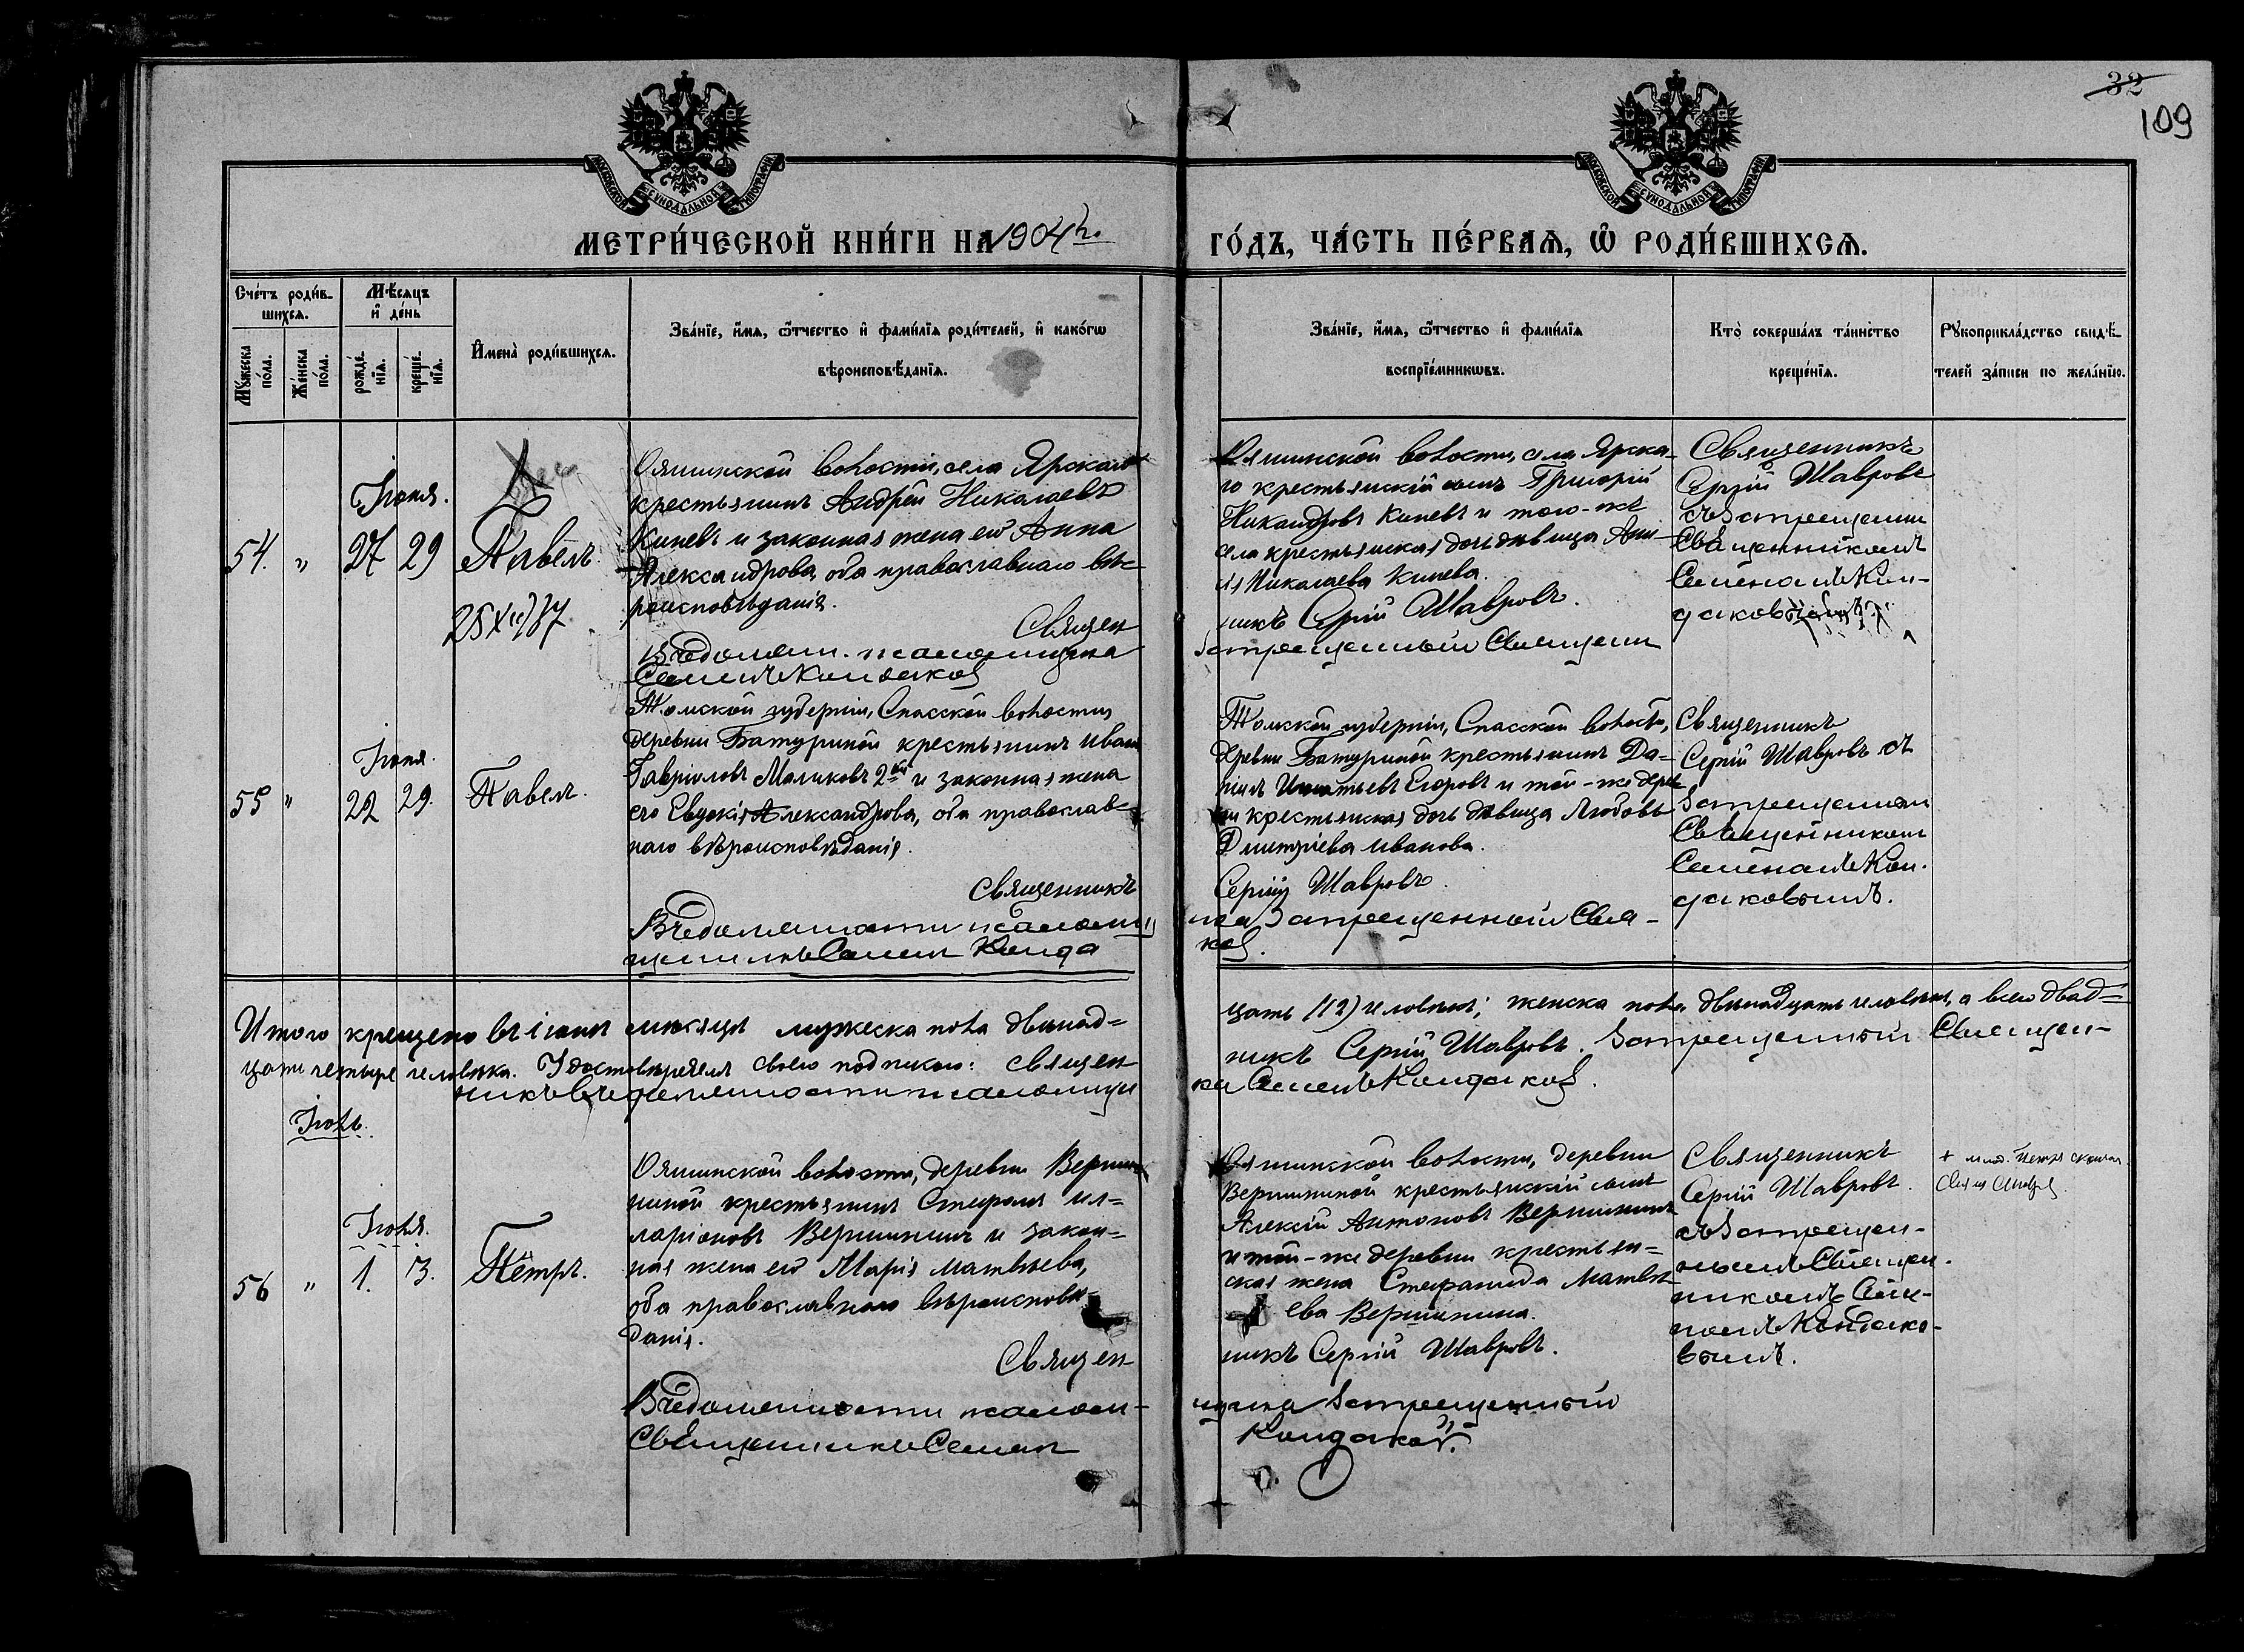 32
109
МОСКОВСКОЙ СѴНОДАЛЬНОЙ ТИПОГРАФІИ
МОСКОВСКОЙ СѴНОДАЛЬНОЙ ТИПОГРАФІИ
МЕТРИ́ЧЕСКОЙ КНИ́ГИ НА 1904 й.
ГО́ДЪ, ЧА́СТЬ ПЕ́РВАѦ, Ѽ РОДИ́ВШИХСѦ.
Сче́тъ роди́в-
шихсѧ.
Мꙋжеска
по́ла.
Же́нска
по́ла.
Мѣ́сѧцъ
и҆ де́нь
рожде́-
нїѧ.
креще́-
нїѧ.
И҆мена̀ роди́вшихсѧ.
Зва́нїе, и҆́мѧ, ѻ҆́тчество и҆ фами́лїѧ роди́телей, и҆ како́гѡ
вѣроисповѣ́данїѧ.
Зва́нїе, и҆́мѧ, ѻ҆́тчество и҆ фами́лїѧ
воспрїе́мникѡвъ.
Кто̀ соверша́лъ та́инство
креще́нїѧ.
Рꙋкоприкла́дство свидѣ́-
телей за́писи по жела́нїю.
54. „
Іюня.
27 29
Павелъ.
Ояшинской волости, села Ярскаго
крестьянинъ Андрей Николаевъ
Киневъ и законная жена его Анна
Александрова, оба православнаго вѣ-
роисповѣданія.
Священ
Семенъ Кондаков
Ояшинской волости, села Ярска-
го крестьянскій сынъ Григорій
Никандровъ Киневъ и того-же
села крестьянская дочь дѣвица Анн-
Николаева Кинева.
никъ Сергій Шавровъ.
Запрещенный Священн
Священникъ
Сергій Шавровъ
съ Запрещенн
Священникомъ
Семеномъ Кон-
даковымъ
55 „
Іюня.
22 29.
Павелъ.
Томской губерніи, Спасской волости,
деревни Батуриной крестьянинъ Иванъ
Гавріиловъ Маликовъ 2й и законная жена
его Евдокія Александрова, оба православ-
наго вѣроисповѣданія.
Священникъ
Вчедомешности псаломщ
Семен Конда
Томской губерніи, Спасской волости,
деревни Батуриной крестьянинъ Да-
ніилъ Игнатьевъ Егоровъ и той-же дерев-
ни крестьянская дочь дѣвица Любовь
Дмитріева Иванова.
Сергій Шавровъ.
ка Запрещенный Свя-
ков.
Священникъ
Сергій Шавровъ съ
Запрещенным
Священником
Семеномъ Кон-
даковымъ.
Итого крещено въ іюнѣ мѣсяцѣ мужеска пола двѣнад=
цать (12) человѣкъ; женска пола двѣнадцать человѣкъ, а всего двад=
цать четыре человѣка. Удостовѣряемъ своею подписью: Священ
никъ Сергій Шавровъ. Запрещенный Священ-
ка Семенъ Кондаков.
Іюль.
56 „
Іюля.
1. 3.
Петръ.
Ояшинской волости, деревни Верши-
ниной крестьянинъ Стефанъ Ил=
ларіоновъ Вершининъ и закон=
ная жена его Марія Матвѣева,
оба православнаго вѣроисповѣ-
данія.
Священ
Священникъ Семен
Ояшинской волости, деревни
Вершининой крестьянскій сынъ
Алексій Антоновъ Вершининъ
и той-же деревни крестьян=
ская жена Стефанида Матвѣ-
ева Вершинина.
никъ Сергій Шавровъ.
щика Запрещенный
Кондаков.
Священникъ
Сергій Шавровъ.
съ Запрещен-
нымъ Священ-
никомъ Семе-
номъ Кондако-
вымъ.